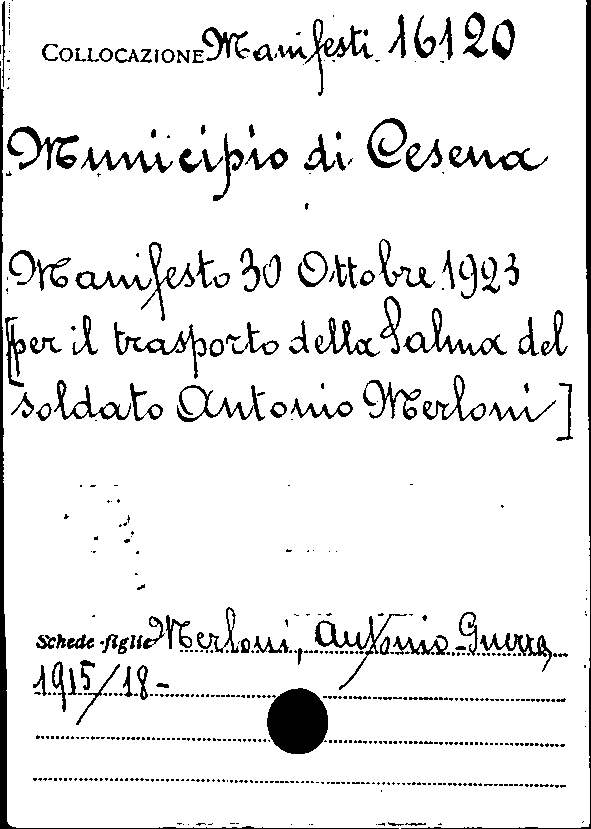 COLLOCAZIONE Manifesti 16120
Municipio di Cesena
Manifesto 30 Ottobre 1923
[per il trasporto della Salma del
soldato Antonio Merloni]
Schede-figlie Merloni, Antonio - Guerra
1915/18 -